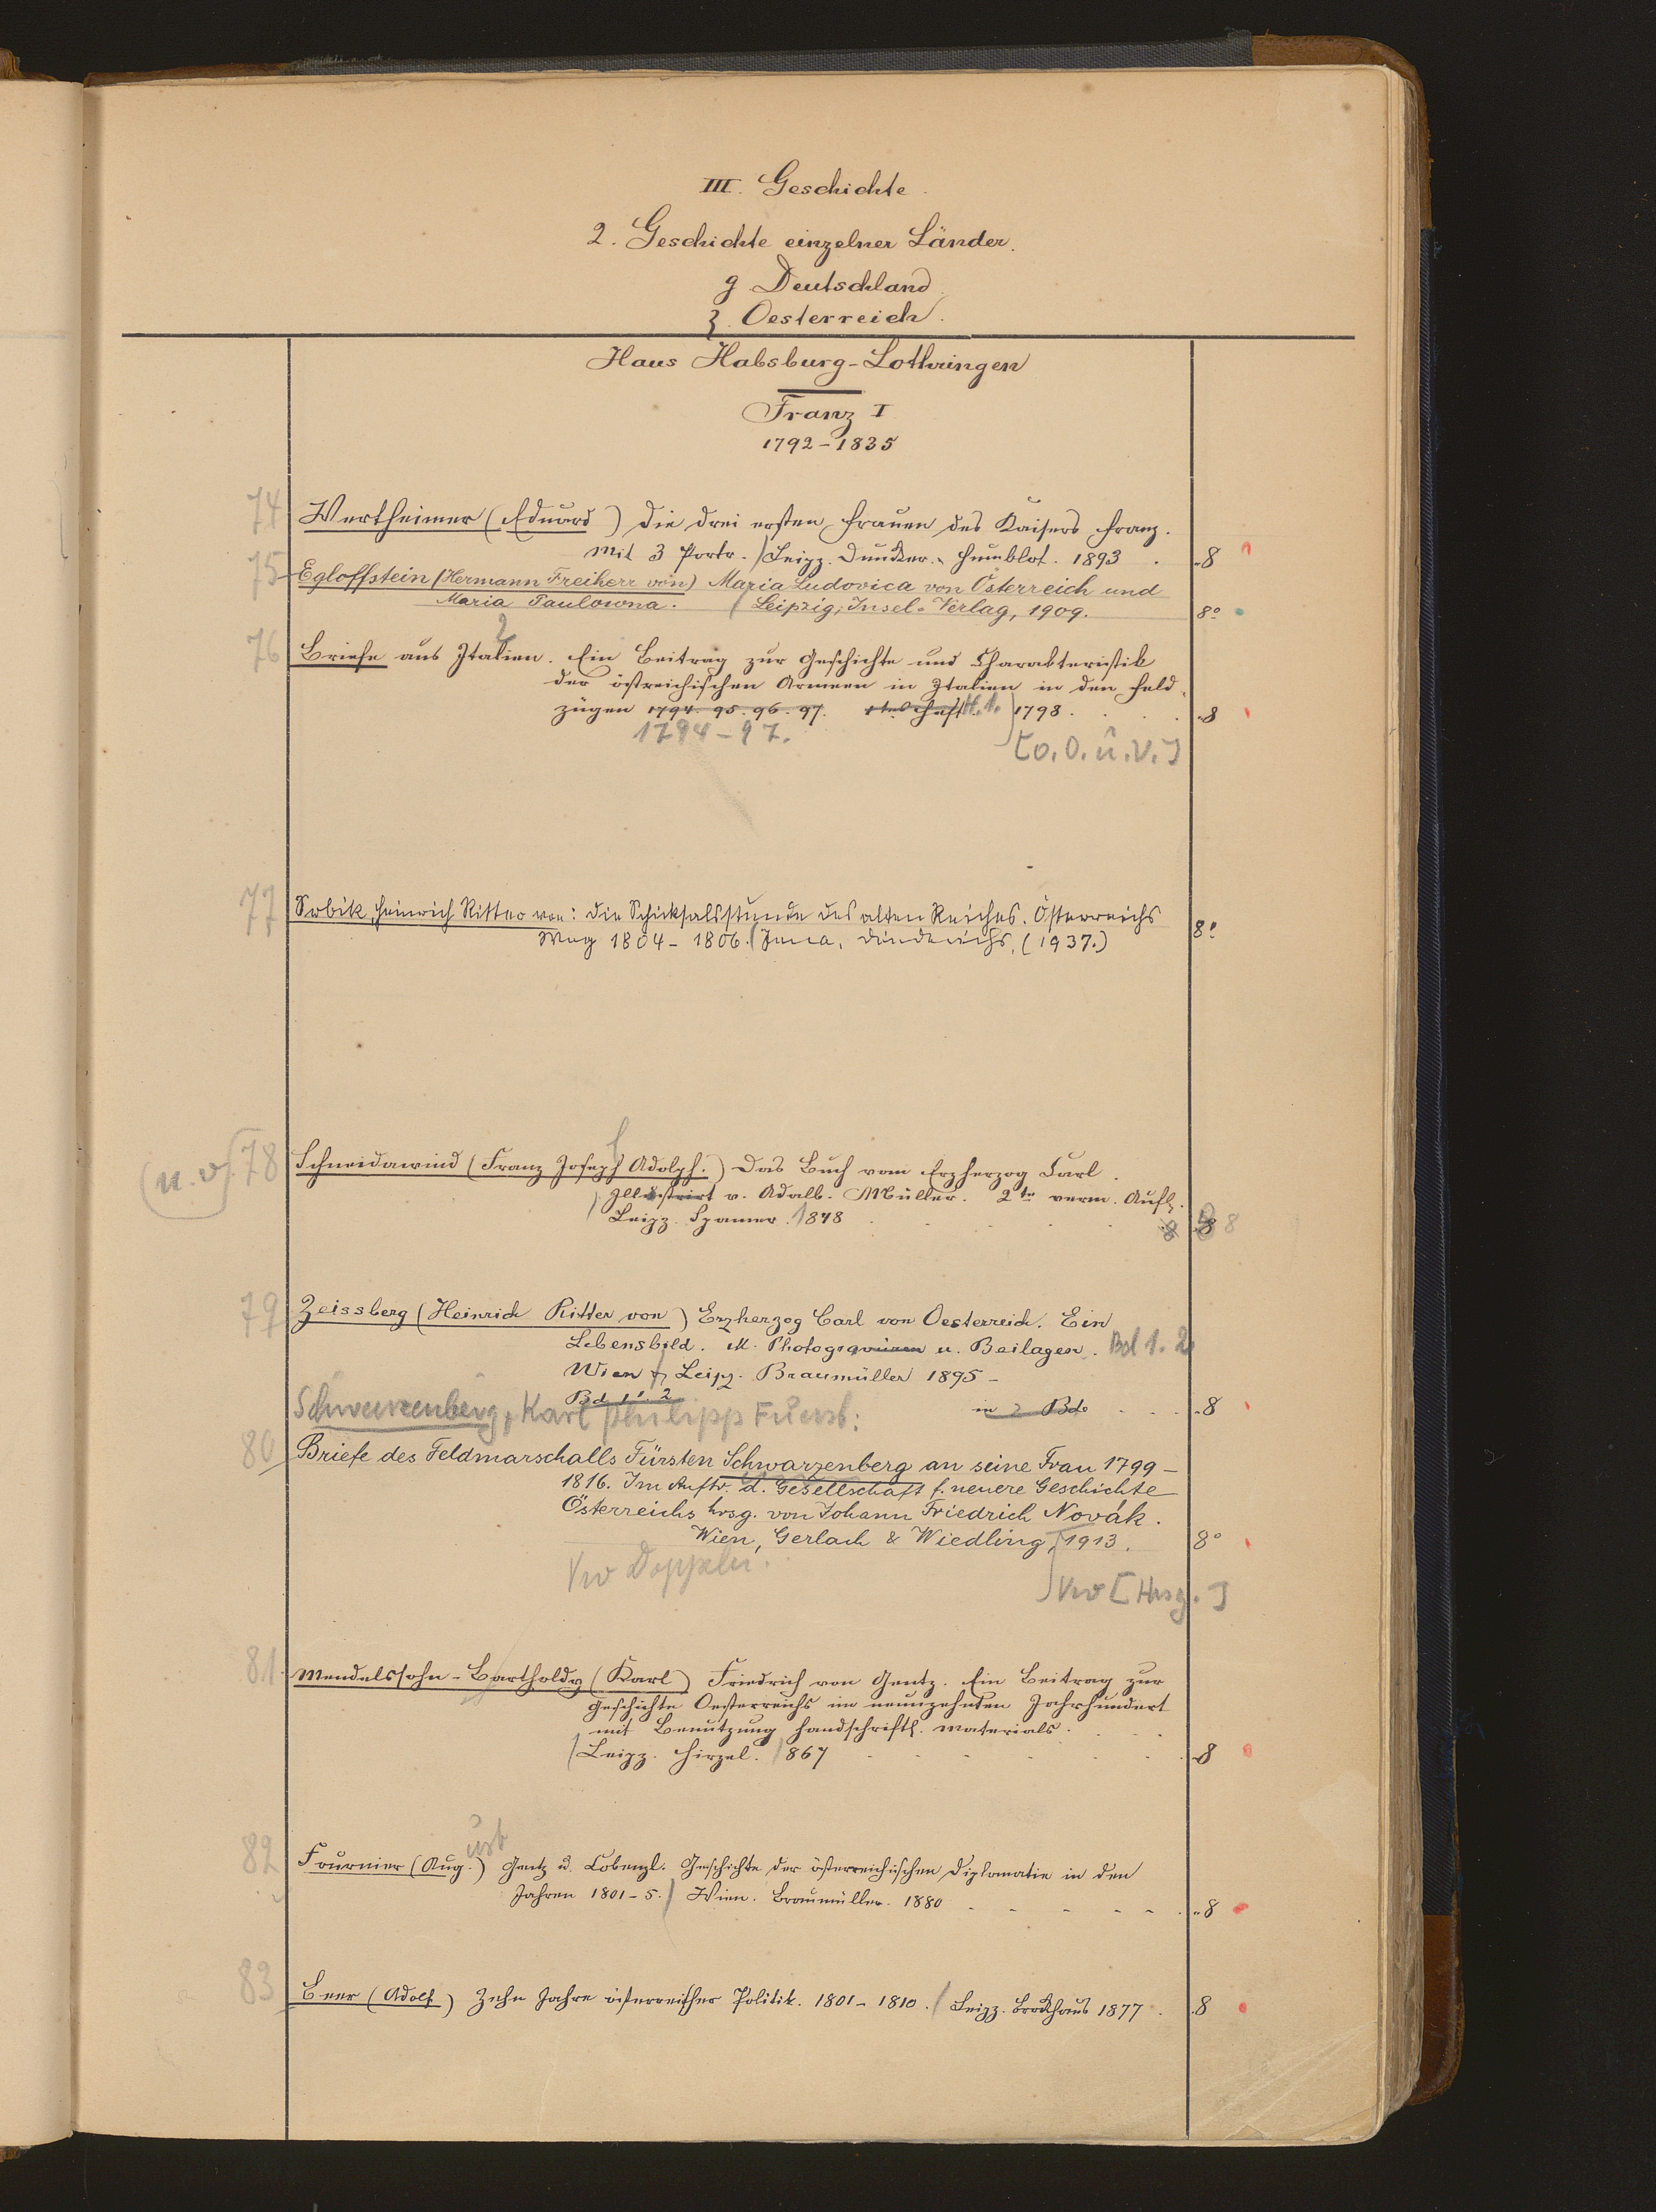 III. Geschichte.
2. Geschichte einzelner Länder.
g Deutschland
ʒ. Oesterreich.
Haus Habsburg-Lothringen
Franz I
1792-1835
74 Wertheimer (Eduard) Die drei ersten Frauen des Kaisers Franz.
Mit 3 Portr. / Leipz. Duncker. Humblot. 1893 . 8
75 Egloffstein (Hermann Freiherr von) Maria Ludovica von Österreich und
Maria Paulowna. / Leipzig, Insel-Verlag, 1909. 8°
76 Briefe aus Italien. Ein Beitrag zur Geschichte und Charakteristik
der östreichischen Armeen in Italien in den Feld-
zügen 1794. 95. 96. 97. 1tes Heft H.1. ) 1798. 8
1794-97. [o.O.u.V.]
77 Srbik, Heinrich Ritter von: Die Schicksalsstunde des alten Reiches. Österreichs
Weg 1804-1806. (Jena, Diederichs, (1937.) 8°
(u. v) 78 Schneidawind (Franz Joseph Adolph.) Das Buch vom Erzherzog Carl.
Illustrirt v. Adalb. Müller. 2te verm. Aufl.
Leipz. Spamer. 1848 8 8
79 Zeissberg (Heinrich Ritter von) Erzherzog Carl von Oesterreich. Ein
Lebensbild. M. Photogravüren u. Beilagen. Bd 1. 2
Wien & Leipz. Braumüller 1895-
Bd 1. 2 in 2 Bde 8
Schwarzenberg, Karl Philipp Fürst:
80 Briefe des Feldmarschalls Fürsten Schwarzenberg an seine Frau 1799-
1816. Im Auftr. d. Gesellschaft f. neuere Geschichte
Österreichs hrsg. von Johann Friedrich Novák.
Wien, Gerlach & Wiedling, 1913. 8°
Vw Doppeln. Vw [Hrsg.]
81 Mendelssohn-Bartholdy (Karl) Friedrich von Gentz. Ein Beitrag zur
Geschichte Oesterreichs im neunzehnten Jahrhundert
mit Benutzung handschriftl. Materials.
/ Leipz. Hirzel. 1867 8
ust
82 Fournier (Aug.) Gentz u. Cobenzl. Geschichte der österreichischen Diplomatie in den
Jahren 1801-5. / Wien. Braumüller. 1880 8
83 Beer (Adolf) Zehn Jahre österreichischer Politik. 1801-1810. / Leipz. Brockhaus 1877. 8